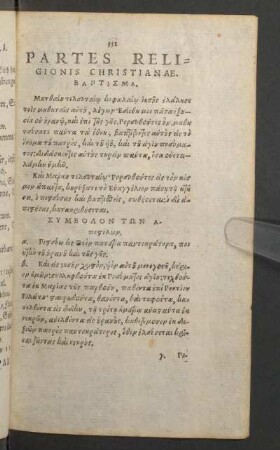 112
PARTES RELI-
GIONIS CHRISTIANAE.
BAPTISMA.
Ματθαίου τελευταίῳ κεφαλαίῳ ἰησοῦς ἐλάλησε
τοῖς μαθηταῖς αὐτοῦ, λέγων· Ἐδόθη μοι πᾶσα ἐξου-
σία ἐν οὐρανῷ, καὶ ἐπὶ γῆς. Πορευθέντες οὖν μαθη-
τεύσατε πάντα τὰ ἔθνη, βαπτίζοντες αὐτοὺς εἰς τὸ
ὄνομα τοῦ πατρὸς, καὶ τοῦ υἱοῦ, καὶ τοῦ ἁγίου πνεύμα-
τος: διδάσκοντες αὐτοὺς τηρεῖν πάντα, ὅσα ἐνετει-
λάμην ὑμῖν.
Καὶ Μάρκου τελευταίῳ· Πορευθέντες εἰς τὸν κόσ-
μον ἅπαντα, κηρύξατε τὸ Εὐαγγέλιον πάσῃ τῇ κτί-
σει. ὁ πιστεύσας καὶ βαπτισθεὶς, σωθήσεται: ὁ δὲ ἀ-
πιστήσας, κατακριθήσεται.
ΣΥΜΒΟΛΟΝ ΤΩΝ Α-
ποστόλων.
α. Πιστεύω εἰς θεὸν πατέρα παντοκράτορα, ποι-
ητὴν τοῦ οὐρανοῦ καὶ τῆς γῆς.
β. Καὶ εἰς ἰησοῦν χριστὸν υἱὸν αὐτοῦ μονογενῆ, κύριον
ἡμῶν: συλληφθέντα ἐκ πνεύματος ἁγίου, τεχθέντα
ἐκ Μαρίας τῆς παρθένου, παθόντα ἐπὶ Ποντίου
Πιλάτου· σταυρωθέντα, θανόντα, καὶ ταφέντα, κα-
τελθόντα εἰς ᾅδην, τῇ τρίτῃ ἡμέρᾳ ἀναστάντα ἐκ
νεκρῶν, ἀνελθόντα εἰς οὐρανοὺς, καθεζόμενον ἐν δε-
ξιᾷ πατρὸς παντοκράτορος, ὅθεν ἐλεύσεται κρῖ-
ναι ζῶντας καὶ νεκρούς.
γ. Πι-